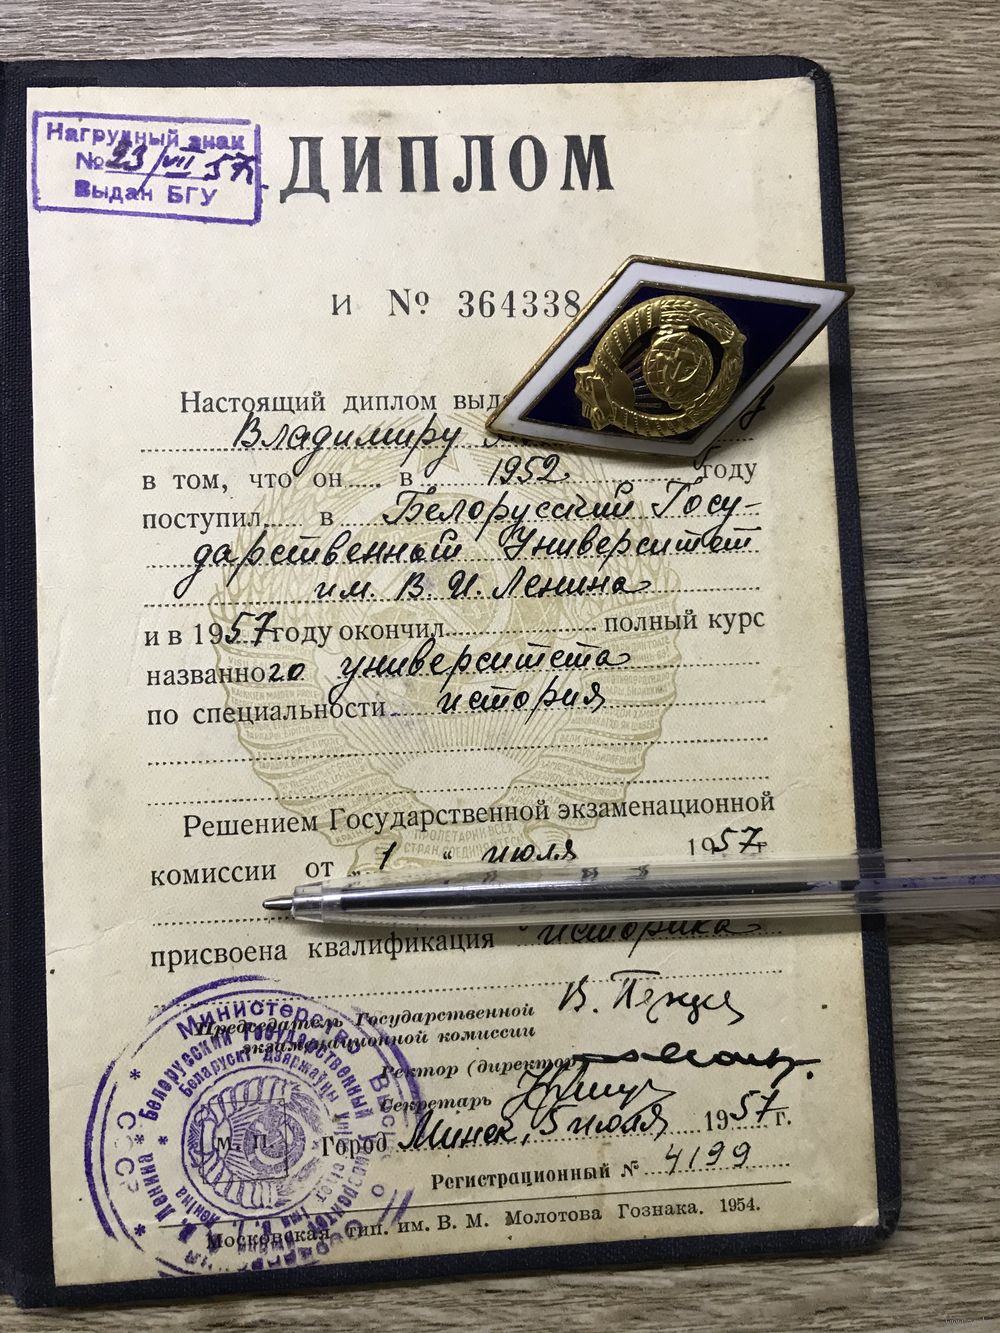 Нагрудный знак
№ 23/VII 57г.
Выдан БГУ
ДИПЛОМ
И № 364338
Настоящий диплом выд
Владимиру
в том, что он в 1952 году
поступил в Белорусский Госу-
дарственный Университет
им. В. И. Ленина
и в 1957 году окончил полный курс
названного университета
по специальности история
ПРОЛЕТАРИИ ВСЕХ
СТРАН, СОЕДИНЯЙТЕСЬ
Решением Государственной экзаменационной
комиссии от „1“ июля 1957 г.
присвоена квалификация историка
Председатель Государственной
экзаменационной комиссии
Ректор (директор
Секретарь
м. п. Город Минск, 5 июля 1957 г.
Регистрационный № 4199
Московская тип. им. В. М. Молотова Гознака. 1954.
Министерство Высшего
СССР
Белорусский Государственный
Беларускі Дзяржаўны